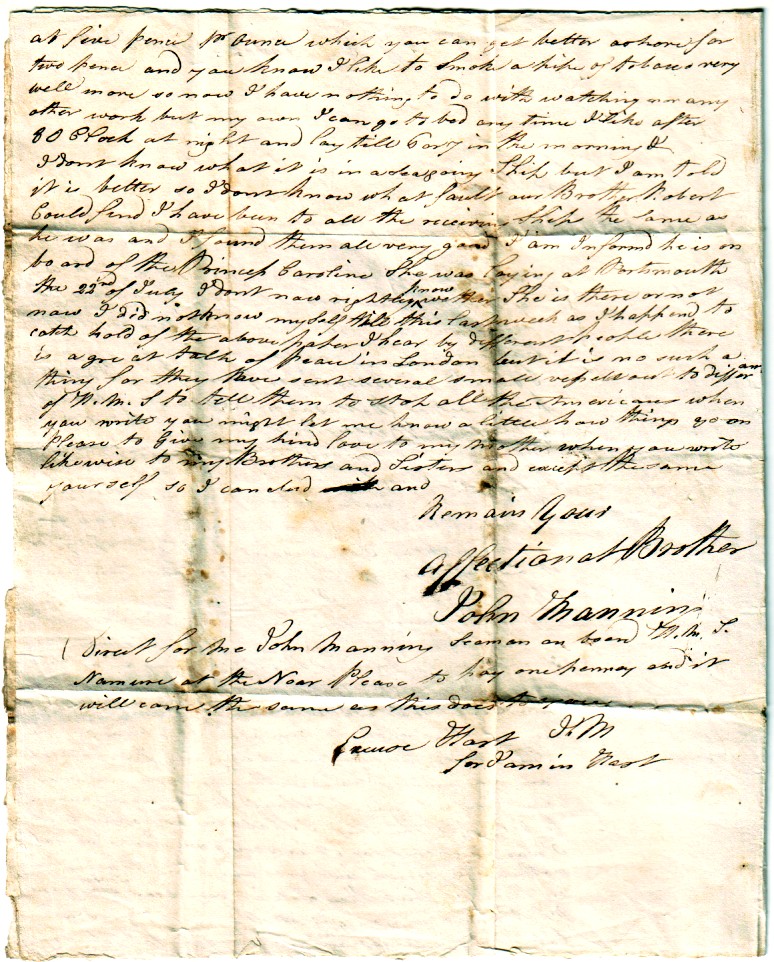 at five pence pr ounce which you can get better ashore for
two pence and you know I like to Smok a pipe of tobacco very
well more so now I have nothing to do with watching nor any
other work but my own I can go to bed any time I like after
8 O Clock at night and lay till 6 or 7 in the morning &
I dont know what it is in a seagoing Ship but I am told
it is better so I dont know what fault our Brother Robert
Could find I have been to all the receiving Ships the same as
he was and I found them all very good I am Informd he is on
board of the Princess Caroline She was laying at Portsmouth
the 22nd of July I dont now rightly know wether She is there or not
now I did not know myself till this last week as I happend to
catch hold of the above paper I hear by different people there
is a great talk of peace in London but it is no such a
thing for they have sent several small vessells out to differant
of H. M. S to tell them to stop all the Americans when
you write you might let me know a little how things go on
Please to give my kind love to my Mother when you write
likewise to my Brothers and Sisters and except the same
yourself so I conclud and
Remain Your
Affectionat Brother
John Manning
Direct for Me John Manning Seaman on board H. M. S.
Namure at the Noar Please to pay one penney and it
will come the same as this does to you
Excuse Hast J. M
for I am in Hast